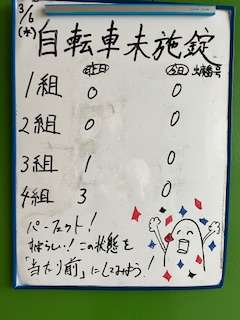 3/6
(水)
自転車未施錠
昨日 今日 出席番号
1組 0 0
2組 0 0
3組 1 0
4組 3 0
パーフェクト!
すばらしい!この状態を
「当たり前」にしてみよう!